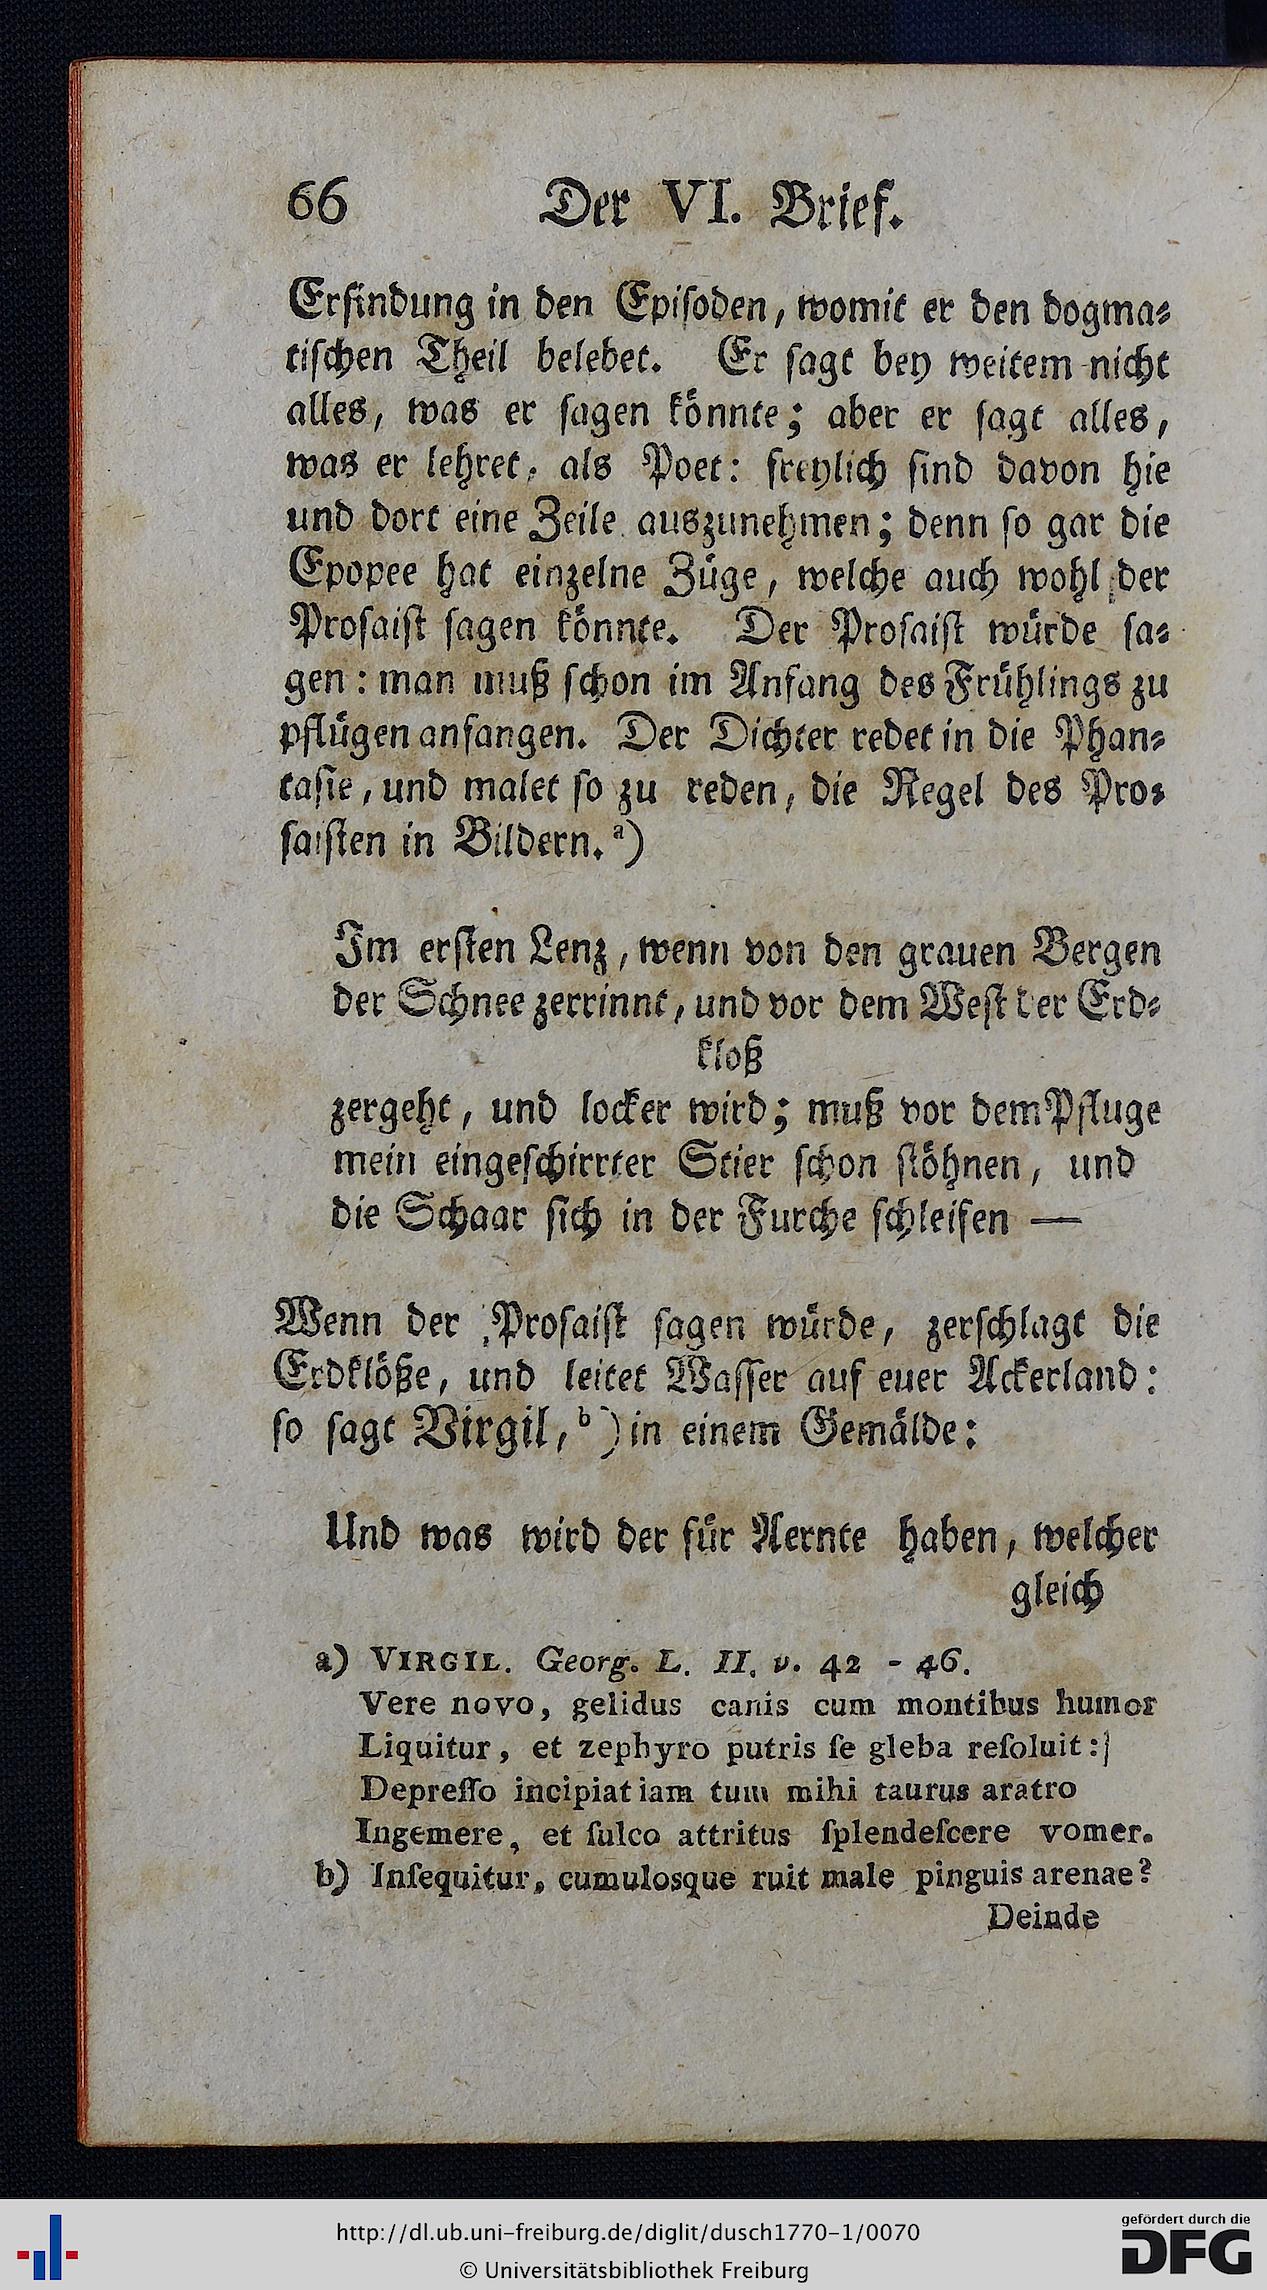 66 Der VI. Brief.
Erfindung in den Epiſoden, womit er den dogma⸗
tiſchen Theil belebet. Er ſagt bey weitem nicht
alles, was er ſagen könnte; aber er ſagt alles,
was er lehret, als Poet: freylich ſind davon hie
und dort eine Zeile auszunehmen; denn ſo gar die
Epopee hat einzelne Züge, welche auch wohl der
Proſaiſt ſagen könnte. Der Proſaiſt würde ſa⸗
gen: man muß ſchon im Anfang des Frühlings zu
pflügen anfangen. Der Dichter redet in die Phan⸗
taſie, und malet ſo zu reden, die Regel des Pro⸗
ſaiſten in Bildern. a)
Im erſten Lenz, wenn von den grauen Bergen
der Schnee zerrinnt, und vor dem Weſt der Erd⸗
kloß
zergeht, und locker wird; muß vor dem Pfluge
mein eingeſchirrter Stier ſchon ſtöhnen, und
die Schaar ſich in der Furche ſchleifen —
Wenn der Proſaiſt ſagen würde, zerſchlagt die
Erdklöße, und leitet Waſſer auf euer Ackerland:
ſo ſagt Virgil, b) in einem Gemälde:
Und was wird der für Aernte haben, welcher
gleich
a) VIRGIL. Georg. L. II. v. 42 - 46.
Vere novo, gelidus canis cum montibus humor
Liquitur, et zephyro putris ſe gleba reſoluit:
Depreſſo incipiat iam tum mihi taurus aratro
Ingemere, et ſulco attritus ſplendeſcere vomer.
b) Inſequitur, cumulosque ruit male pinguis arenae?
Deinde
http://dl.ub.uni-freiburg.de/diglit/dusch1770-1/0070
© Universitätsbibliothek Freiburg
gefördert durch die
DFG